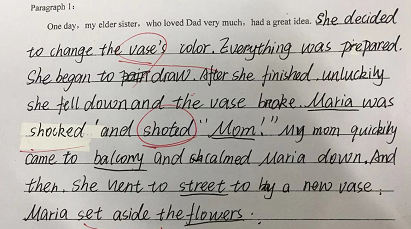 Paragraph 1:
One day, my elder sister, who loved Dad very much, had a great idea. She decided
to change the vase's color. Everything was prepared.
She began to draw. After she finished, unluckily
she fell down and the vase broke. Maria was
shocked and shoted "Mom!" My mom quickily
came to balcony and calmed Maria down. And
then, she went to street to by a new vase.
Maria set aside the flowers.